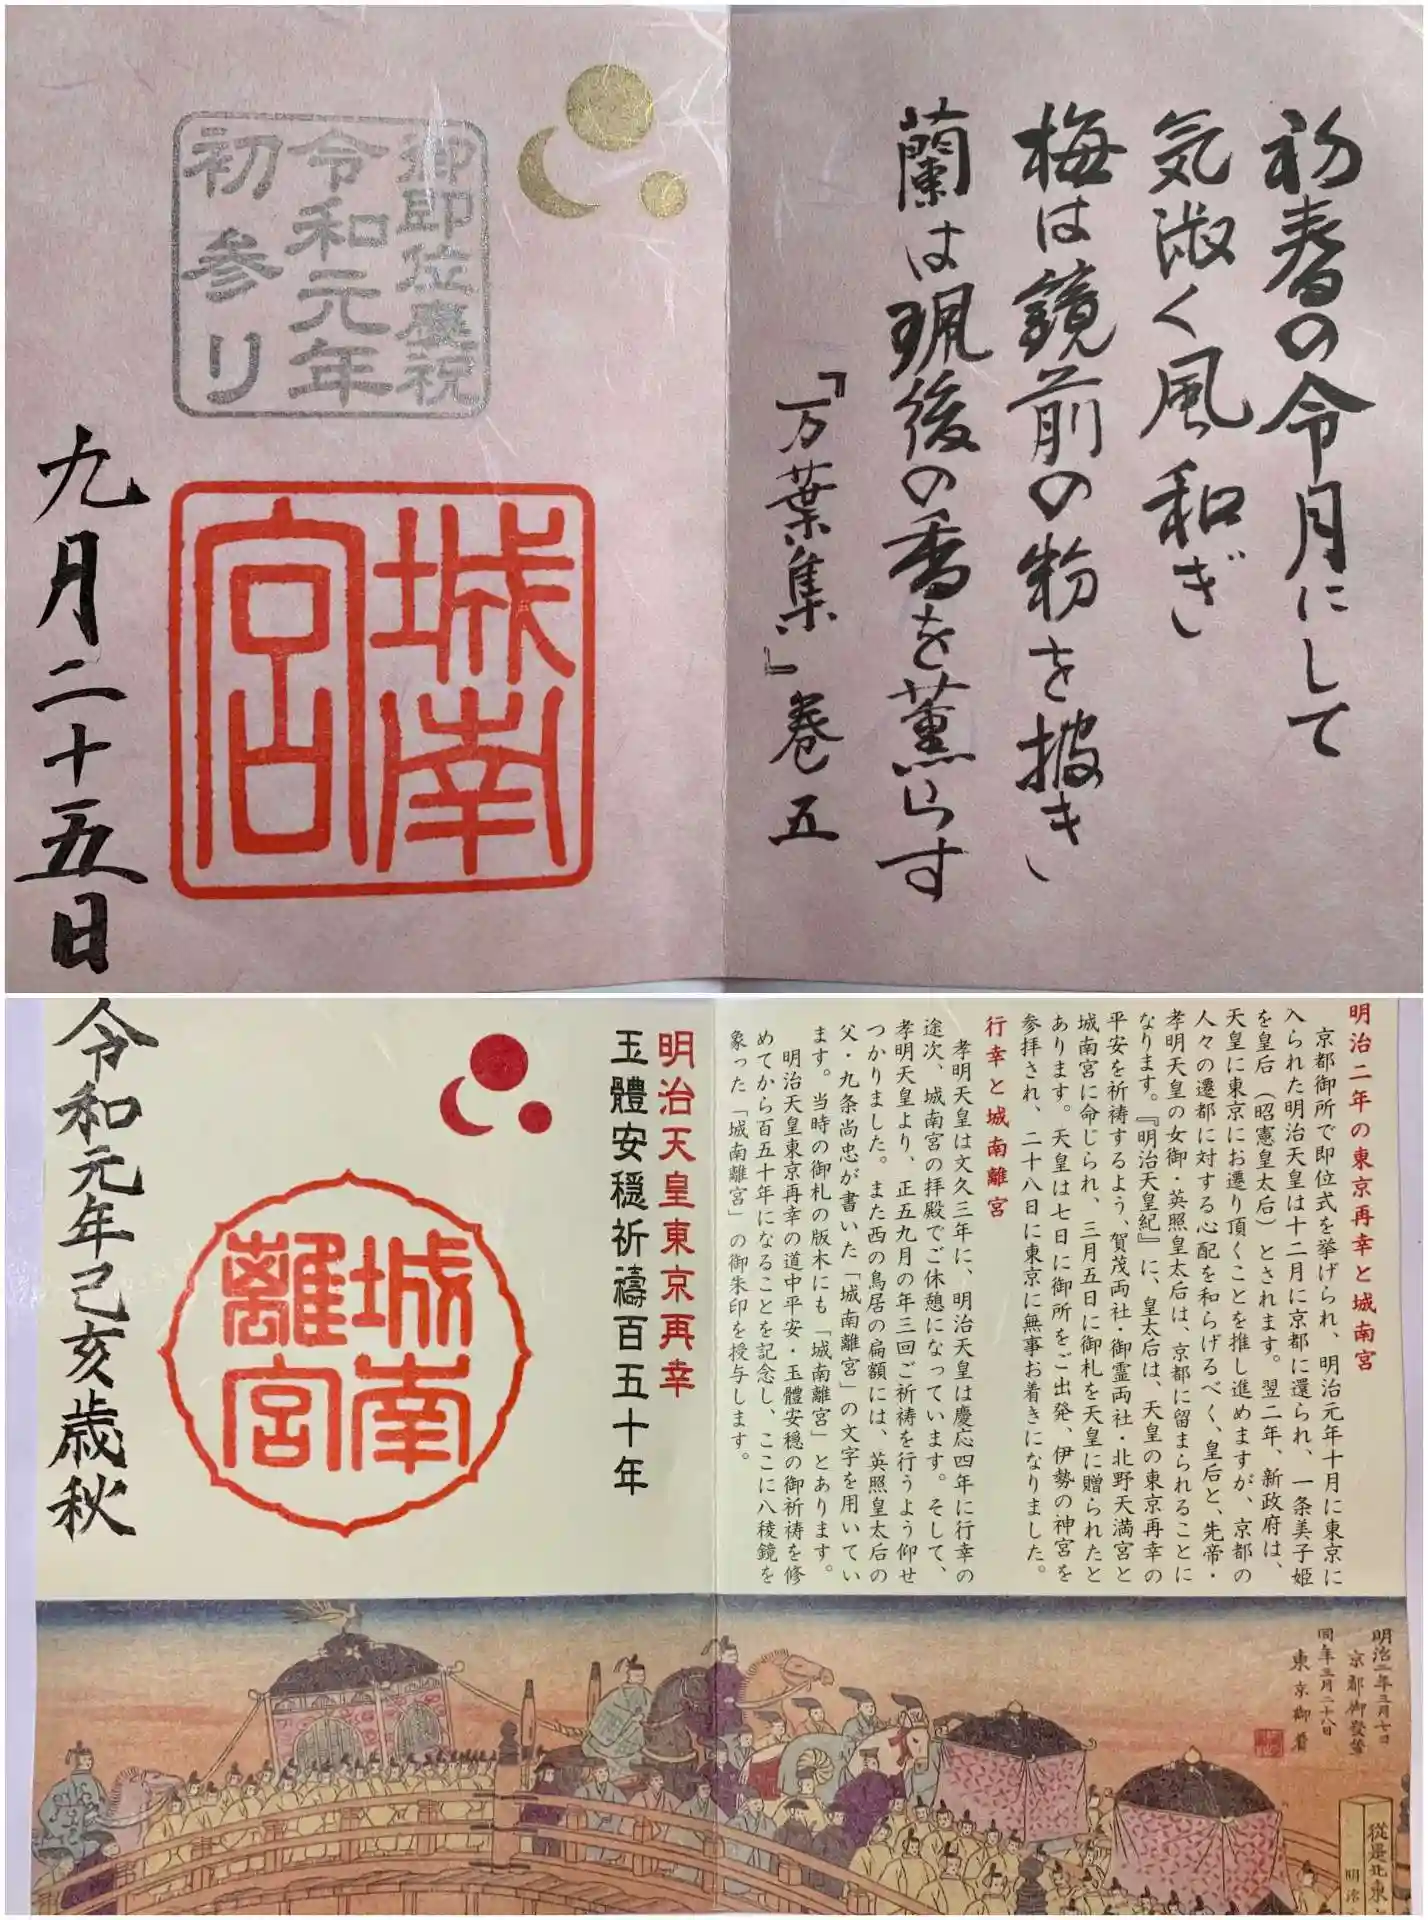 初春の令月にして
気淑く風和ぎ
梅は鏡前の粉を披き
蘭は珮後の香を薫らす
『万葉集』巻五
御即位慶祝
令和元年
初参り
城南
宮
九月二十五日
明治二年の東京再幸と城南宮
京都御所で即位式を挙げられ、明治元年十月に東京に
入られた明治天皇は十二月に京都に還られ、一条美子姫
を皇后（昭憲皇太后）とされます。翌二年、新政府は、
天皇に東京にお遷り頂くことを推し進めますが、京都の
人々の遷都に対する心配を和らげるべく、皇后と、先帝・
孝明天皇の女御・英照皇太后は、京都に留まられることに
なります。『明治天皇紀』に、皇太后は、天皇の東京再幸の
平安を祈祷するよう、賀茂両社・御霊両社・北野天満宮と
城南宮に命じられ、三月五日に御札を天皇に贈られたと
あります。天皇は七日に御所をご出発、伊勢の神宮を
参拝され、二十八日に東京に無事お着きになりました。
行幸と城南離宮
孝明天皇は文久三年に、明治天皇は慶応四年に行幸の
途次、城南宮の拝殿でご休憩になっています。そして、
孝明天皇より、正五九月の年三回ご祈祷を行うよう仰せ
つかりました。また西の鳥居の扁額には、英照皇太后の
父・九条尚忠が書いた「城南離宮」の文字を用いてい
ます。当時の御札の版木にも「城南離宮」とあります。
明治天皇東京再幸の道中平安・玉體安穏の御祈祷を修
めてから百五十年になることを記念し、ここに八稜鏡を
象った「城南離宮」の御朱印を授与します。
明治天皇東京再幸
玉體安穏祈禱百五十年
城南
離宮
令和元年己亥歳秋
明治二年三月七日
京都御發輦
同年三月二十八日
東京御着
從是北東
明治